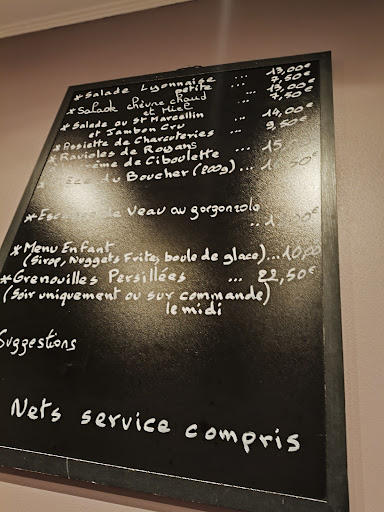 *Salade Lyonnaise ... 13,00€
petite ... 7,50€
*Salade chèvre chaud ... 13,00€
et Miel ... 7,50€
*Salade au St Marcellin ... 14,00€
et Jambon Cru
*Assiette de Charcuteries ... 9,50€
*Ravioles de Royans
Crème de Ciboulette ... 15
* du Boucher (800g) ...
*Escalope de Veau au gorgonzola
..
*Menu Enfant
(Sirop, Nuggets Frites, boule de glace)...10,00
*Grenouilles Persillées ... 22,50€
(Soir uniquement ou sur commande)
le midi
Suggestions
Nets service compris